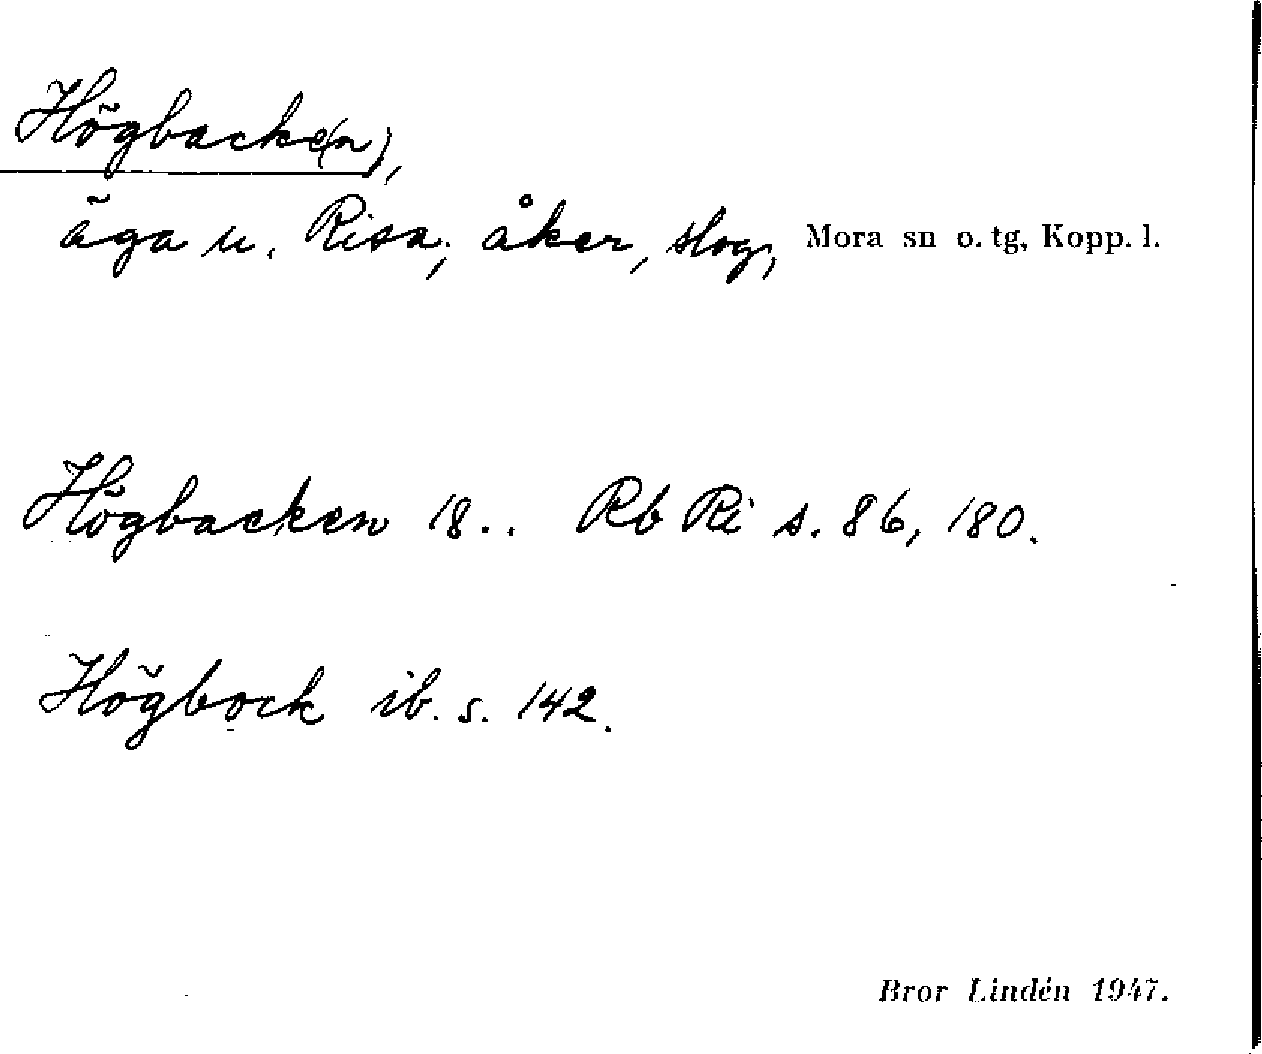 Högbacke(n),
äga u. Risa; åker, slog, Mora sn o. tg, Kopp. l.
Högbacken 18.. Rb Ri s. 86, 180.
Högbock ib. s. 142.
Bror Lindén 1947.